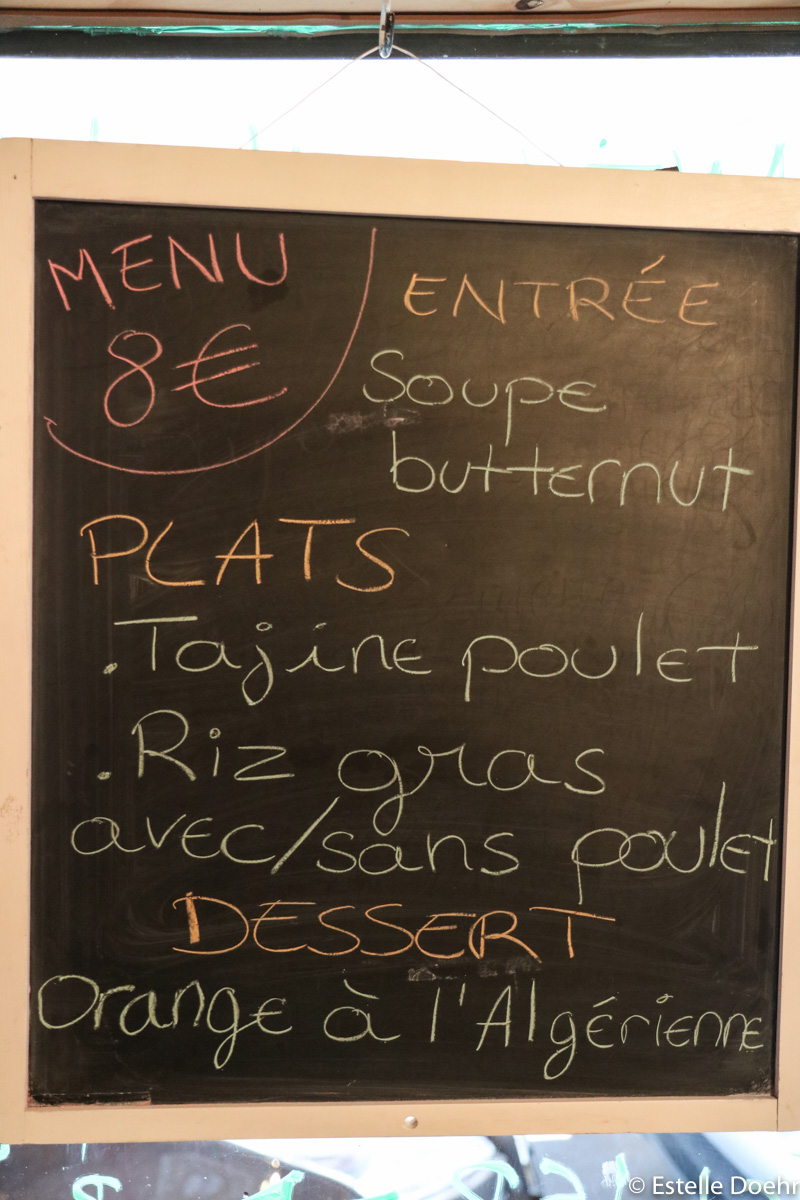 MENU
8€
ENTRÉE
Soupe
butternut
PLATS
.Tajine poulet
.Riz gras
avec/sans poulet
DESSERT
Orange à l'Algérienne
© Estelle Doehr